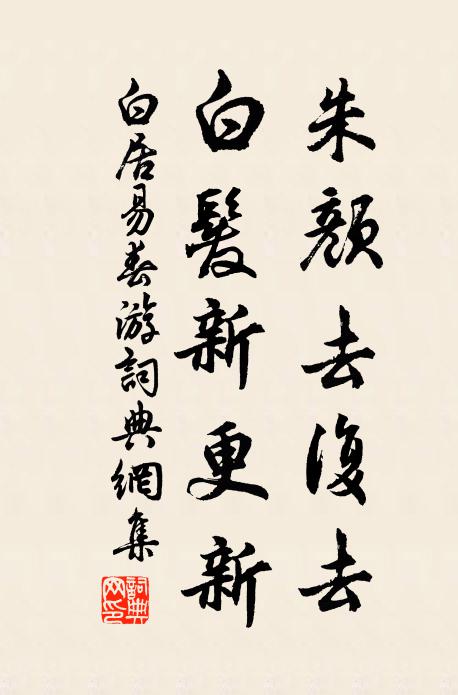 朱顏去復去
白髮新更新
白居易春游詞典網集
詞典網印